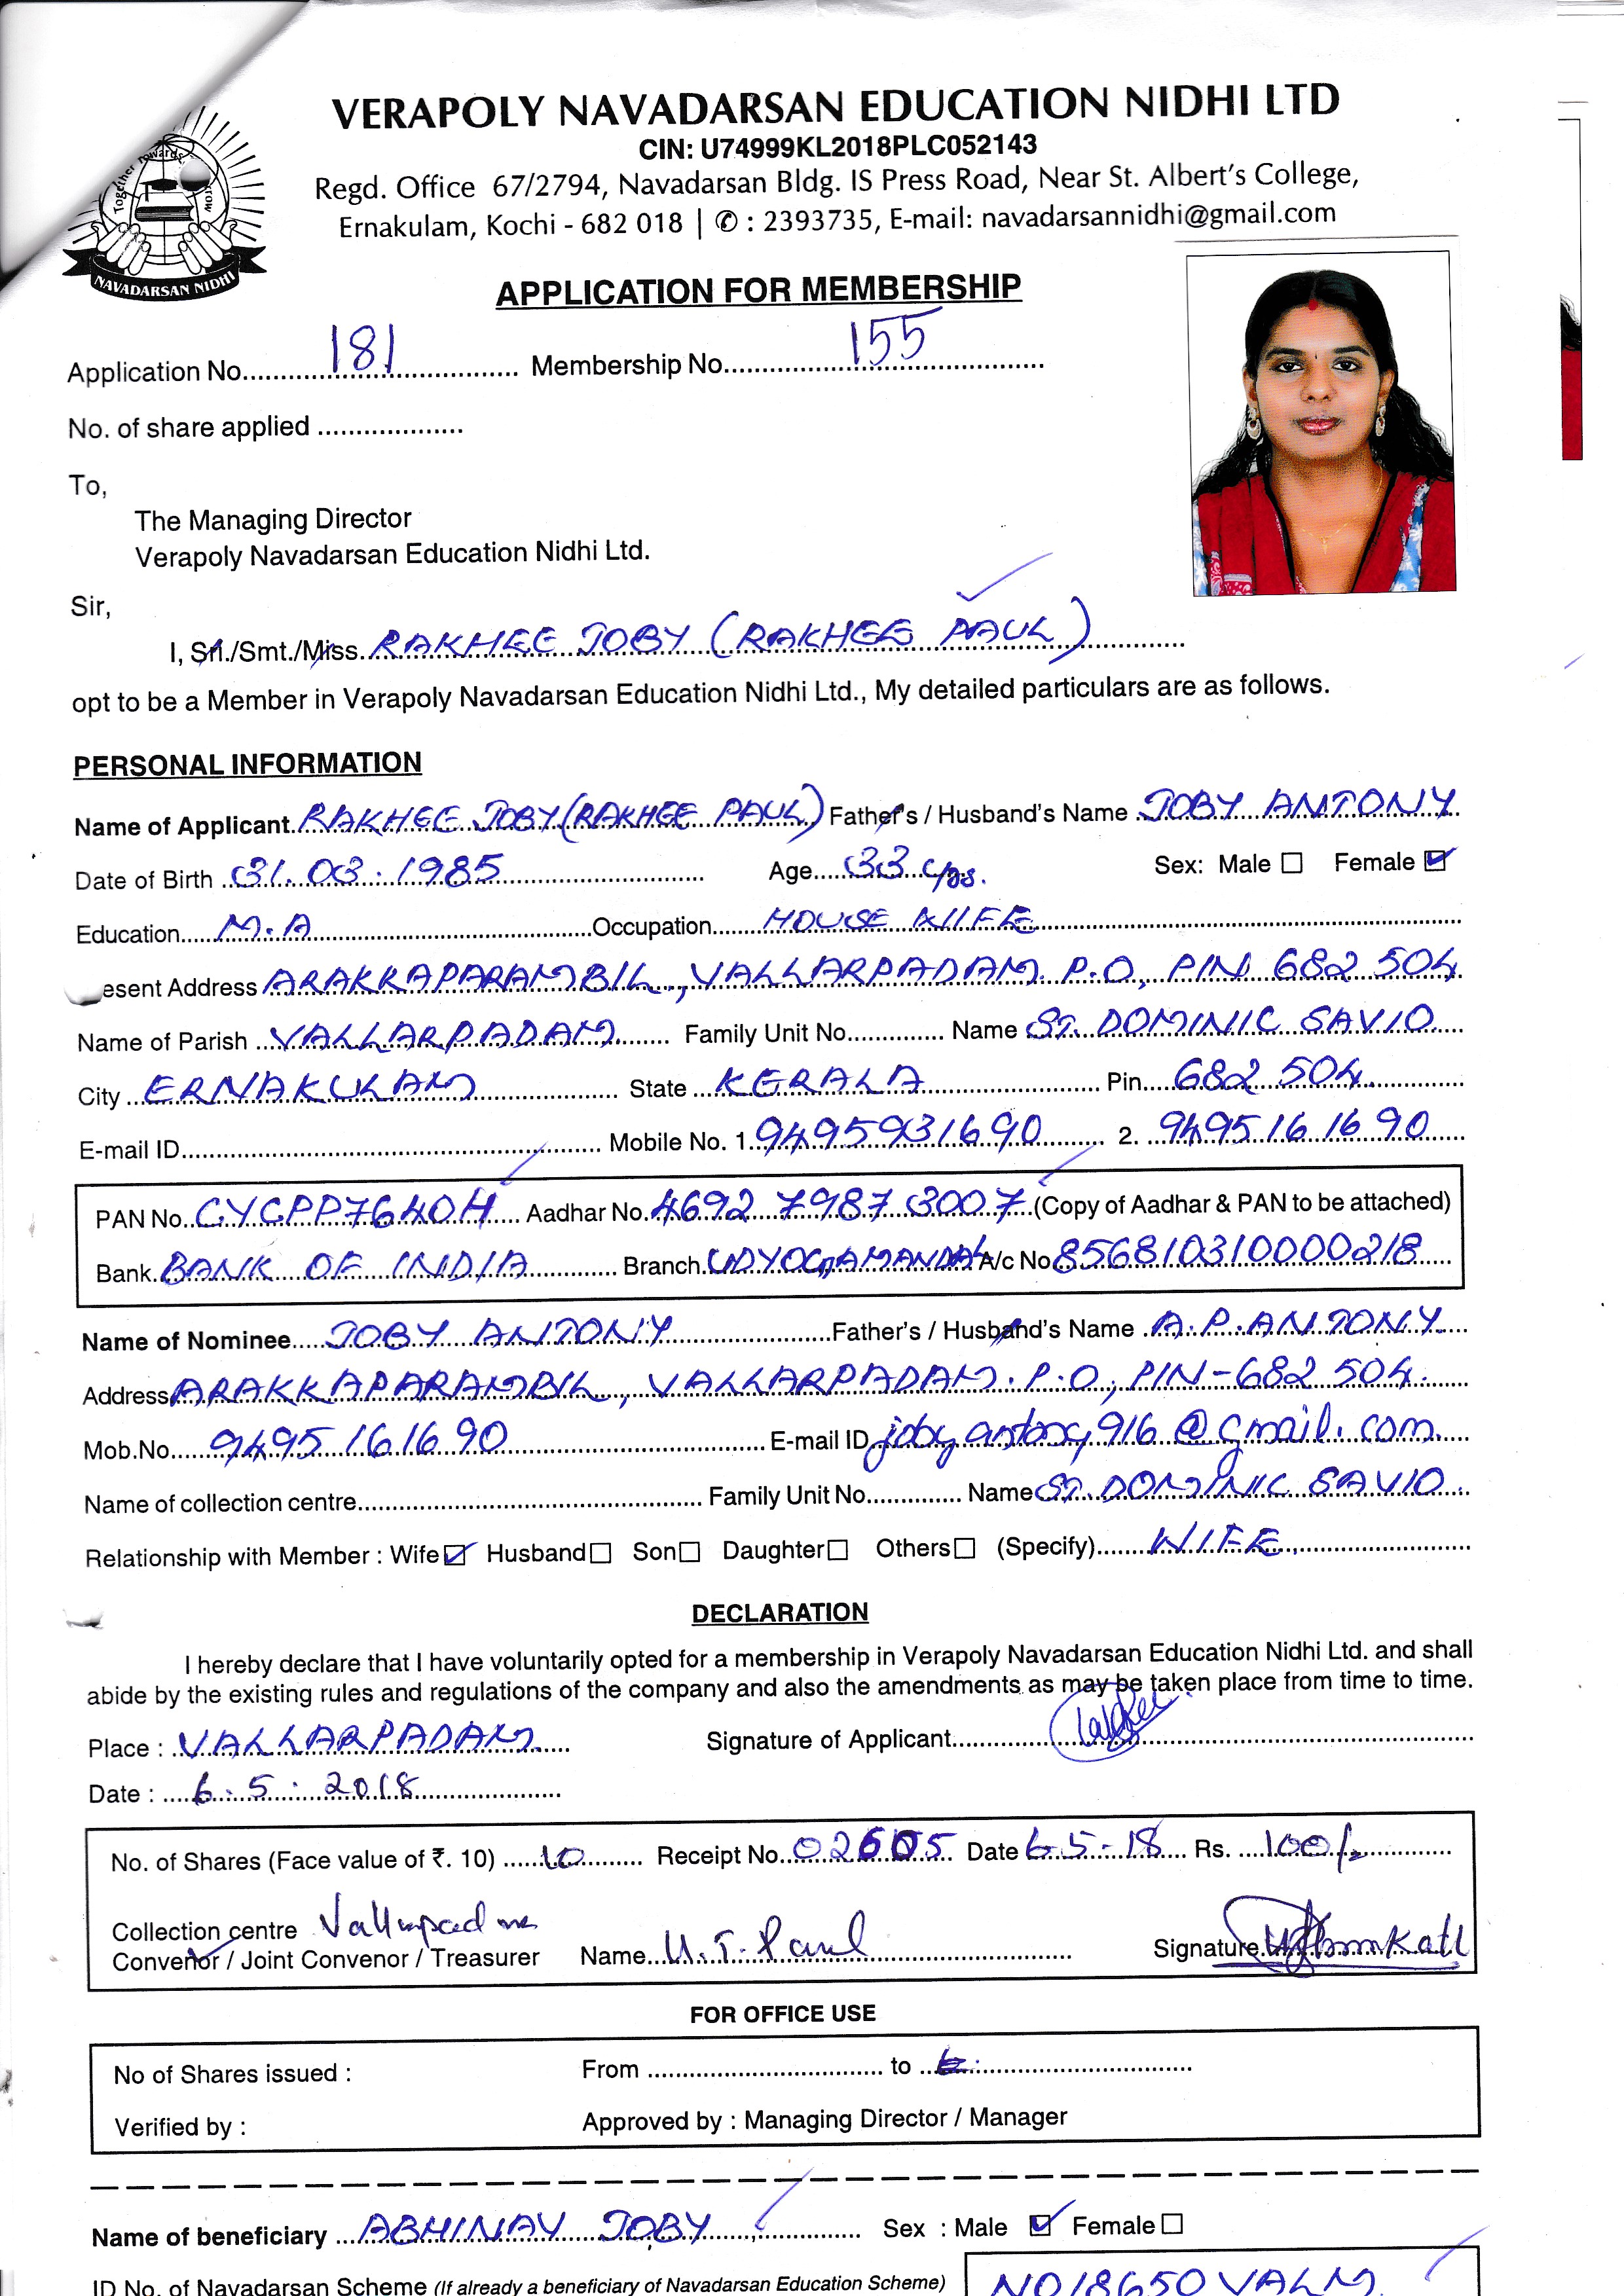 VERAPOLY NAVADARSAN EDUCATION NIDHI LTD
CIN: U74999KL2018PLC052143
Regd. Office 67/2794, Navadarsan Bldg. IS Press Road, Near St. Albert's College,
Ernakulam, Kochi - 682 018 | ✆ : 2393735, E-mail: navadarsannidhi@gmail.com
Together towards
NAVADARSAN NIDHI
APPLICATION FOR MEMBERSHIP
Application No. 181 Membership No. 155
No. of share applied
To,
The Managing Director
Verapoly Navadarsan Education Nidhi Ltd.
Sir,
I, Sri./Smt./Miss. RAKHEE JOBY (RAKHEE PAUL)
opt to be a Member in Verapoly Navadarsan Education Nidhi Ltd., My detailed particulars are as follows.
PERSONAL INFORMATION
Name of Applicant RAKHEE JOBY (RAKHEE PAUL) Father's / Husband's Name JOBY ANTONY
Date of Birth 31.03.1985 Age 33 yrs. Sex: Male ☐ Female ☑
Education M.A Occupation HOUSE WIFE
esent Address ARAKKAPARAMBIL, VALLARPADAM P.O, PIN 682 504
Name of Parish VALLARPADAM Family Unit No. Name ST. DOMINIC SAVIO
City ERNAKULAM State KERALA Pin 682 504
E-mail ID Mobile No. 1. 9495931690 2. 9495161690
PAN No. CYCPP7640H Aadhar No. 4692 7987 3007 (Copy of Aadhar & PAN to be attached)
Bank BANK OF INDIA Branch UDYOGAMANDAL A/c No 856810310000218
Name of Nominee JOBY ANTONY Father's / Husband's Name A.P. ANTONY
Address ARAKKAPARAMBIL, VALLARPADAM. P.O, PIN-682 504.
Mob.No. 9495 161690 E-mail ID jobyantony916@gmail.com
Name of collection centre Family Unit No. Name ST. DOMINIC SAVIO
Relationship with Member : Wife ☑ Husband ☐ Son ☐ Daughter ☐ Others ☐ (Specify) WIFE
DECLARATION
I hereby declare that I have voluntarily opted for a membership in Verapoly Navadarsan Education Nidhi Ltd. and shall
abide by the existing rules and regulations of the company and also the amendments as may be taken place from time to time.
Place : VALLARPADAM Signature of Applicant
Date : 6.5.2018
No. of Shares (Face value of ₹. 10) 10 Receipt No. 02605 Date 6-5-18 Rs. 100/-
Collection centre
Convenor / Joint Convenor / Treasurer Name U.T. Paul Signature
FOR OFFICE USE
No of Shares issued : From to
Verified by : Approved by : Managing Director / Manager
Name of beneficiary ABHINAV JOBY Sex : Male ☑ Female ☐
ID No. of Navadarsan Scheme (If already a beneficiary of Navadarsan Education Scheme) NO18650VALM